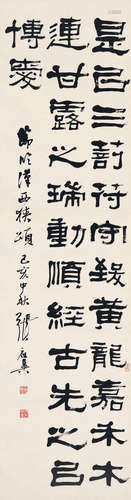 是㠯三莂符守致黃龍嘉禾木
連甘露之瑞動順經古先之㠯
博愛
節臨漢西狹頌 己亥中秋 張